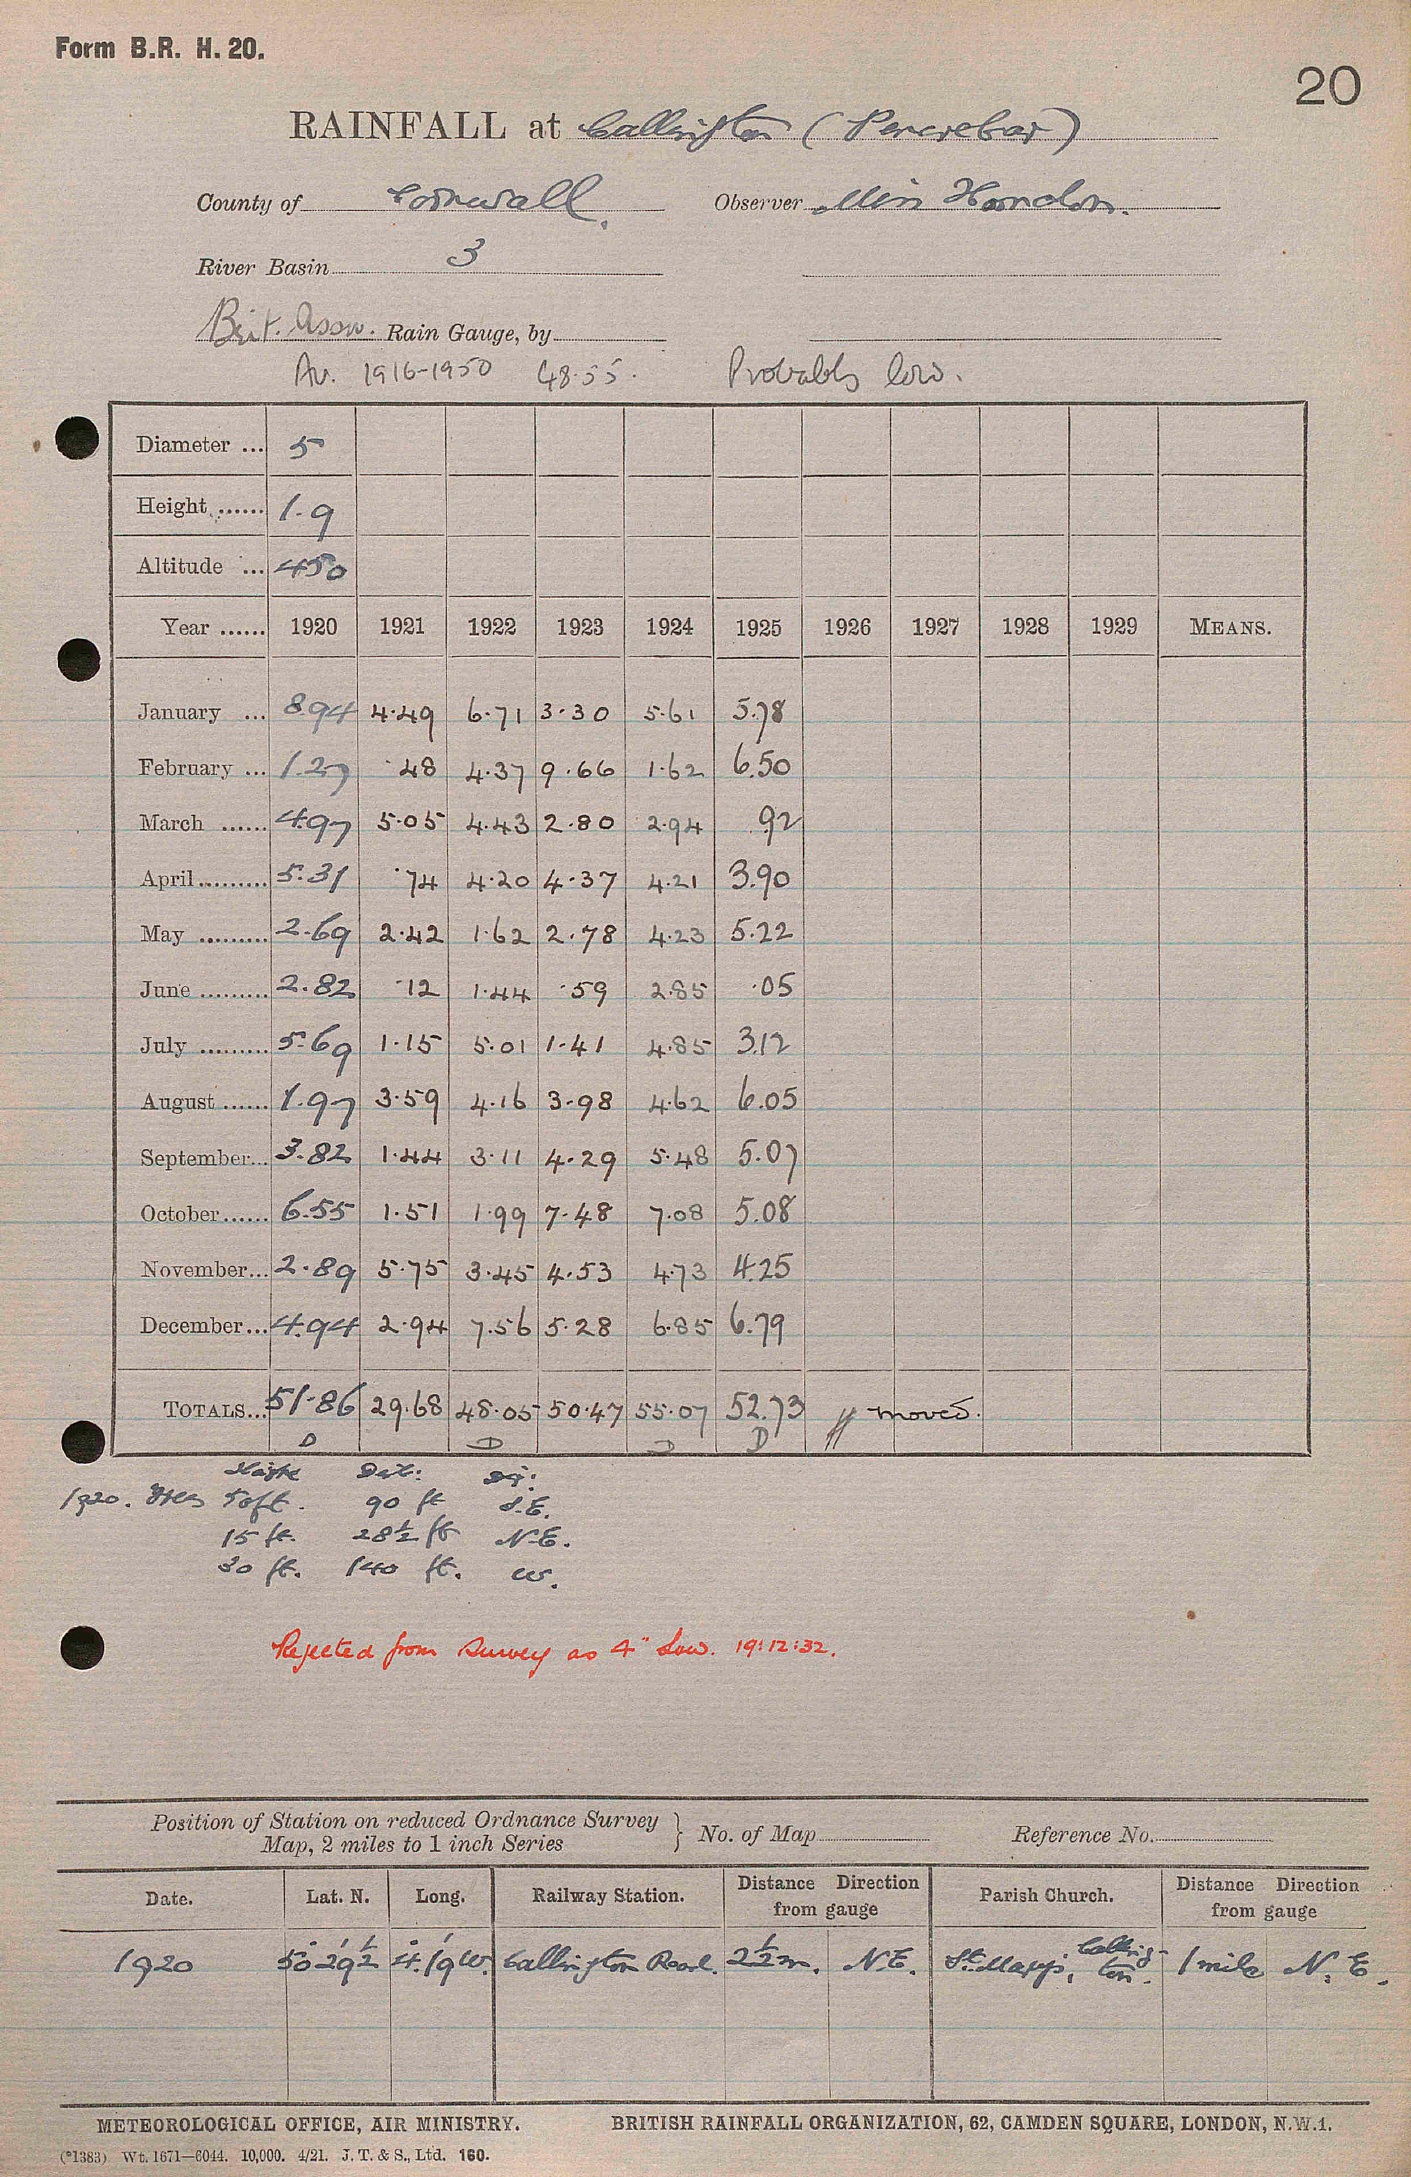 Form B.R. H. 20.
20
RAINFALL at Callington (Pencrebar)
County of Cornwall. Observer Miss Horndon.
River Basin 3
Brit. Assn. Rain Gauge, by
Av. 1916-1950 48.55. Probably low.
Diameter ... 5
Height ...... 1.9
Altitude ... 450
Year ...... 1920 1921 1922 1923 1924 1925 1926 1927 1928 1929 MEANS.
January ... 8.94 4.49 6.71 3.30 5.61 5.78
February ... 1.27 .48 4.37 9.66 1.62 6.50
March ...... 4.97 5.05 4.43 2.80 2.94 .92
April ......... 5.31 .74 4.20 4.37 4.21 3.90
May ......... 2.69 2.42 1.62 2.78 4.23 5.22
June ......... 2.82 .12 1.44 .59 2.85 .05
July ......... 5.69 1.15 5.01 1.41 4.85 3.12
August ...... 1.97 3.59 4.16 3.98 4.62 6.05
September... 3.82 1.44 3.11 4.29 5.48 5.07
October...... 6.55 1.51 1.99 7.48 7.08 5.08
November... 2.89 5.75 3.45 4.53 4.73 4.25
December... 4.94 2.94 7.56 5.28 6.85 6.79
TOTALS... 51.86 29.68 48.05 50.47 55.07 52.73 moved.
D D D D
1920. Trees 50ft. 90 ft S.E.
15 ft. 28½ ft N.E.
30 ft. 140 ft. W.
Rejected from Survey as 4" low. 19:12:32.
Position of Station on reduced Ordnance Survey
Map, 2 miles to 1 inch Series } No. of Map Reference No.
Date. Lat. N. Long. Railway Station. Distance Direction from gauge Parish Church. Distance Direction from gauge
1920 50° 29½' 4° 19' W. Callington Road. 2½ m. N.E. St. Mary's, Callington. 1 mile N.E.
METEOROLOGICAL OFFICE, AIR MINISTRY. BRITISH RAINFALL ORGANIZATION, 62, CAMDEN SQUARE, LONDON, N.W.1.
(*1383) Wt. 1671—6044. 10,000. 4/21. J. T. & S., Ltd. 160.